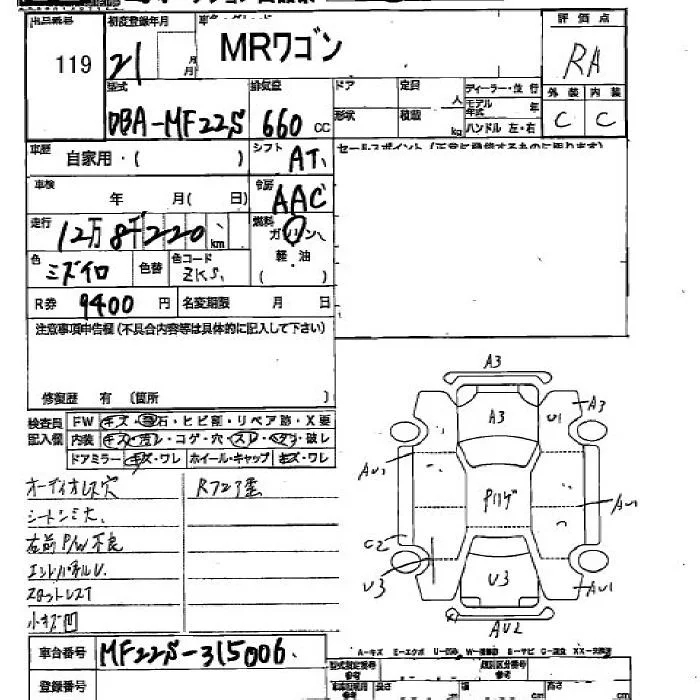 出品番号 初度登録年月
119 21 年 月 MRワゴン
評価点
RA
型式 排気量 ドア 定員 人 ディーラー・並行
モデル年式 年
形状 積載 kg ハンドル 左・右
外装 内装
C C
DBA-MF22S 660 cc
車歴 自家用・( ) シフト AT.
セールスポイント(正常に発揮するものに限ります)
車検 年 月( 日) 冷房 AAC
走行 12万8千220 km 燃料 ガソリン
軽油
( )
色 ミズイロ 色替 色コード ZKS.
R券 9400 円 名変期限 月 日
注意事項申告欄(不具合内容等は具体的に記入して下さい)
修復歴 有 〔箇所 〕
検査員記入欄 FW キズ・飛石・ヒビ割・リペア跡・X要
内装 キズ・汚レ・コゲ・穴・スレ・ヘタリ・破レ
ドアミラー キズ・ワレ ホイール・キャップ キズ・ワレ
オーディオレス穴
シートシミ大.
右前P/W不良
小キズ凹
A3
A3 U1 A3
AU1
AU1
C2
U3 U3 AU1
X
AU2
車台番号 MF22S-315006.
A-キズ E-エクボ U-凹み W-補修跡 S-サビ C-腐食 XX-交換済
登録番号
型式指定番号 参考 類別区分番号 参考
長さ 幅 高さ